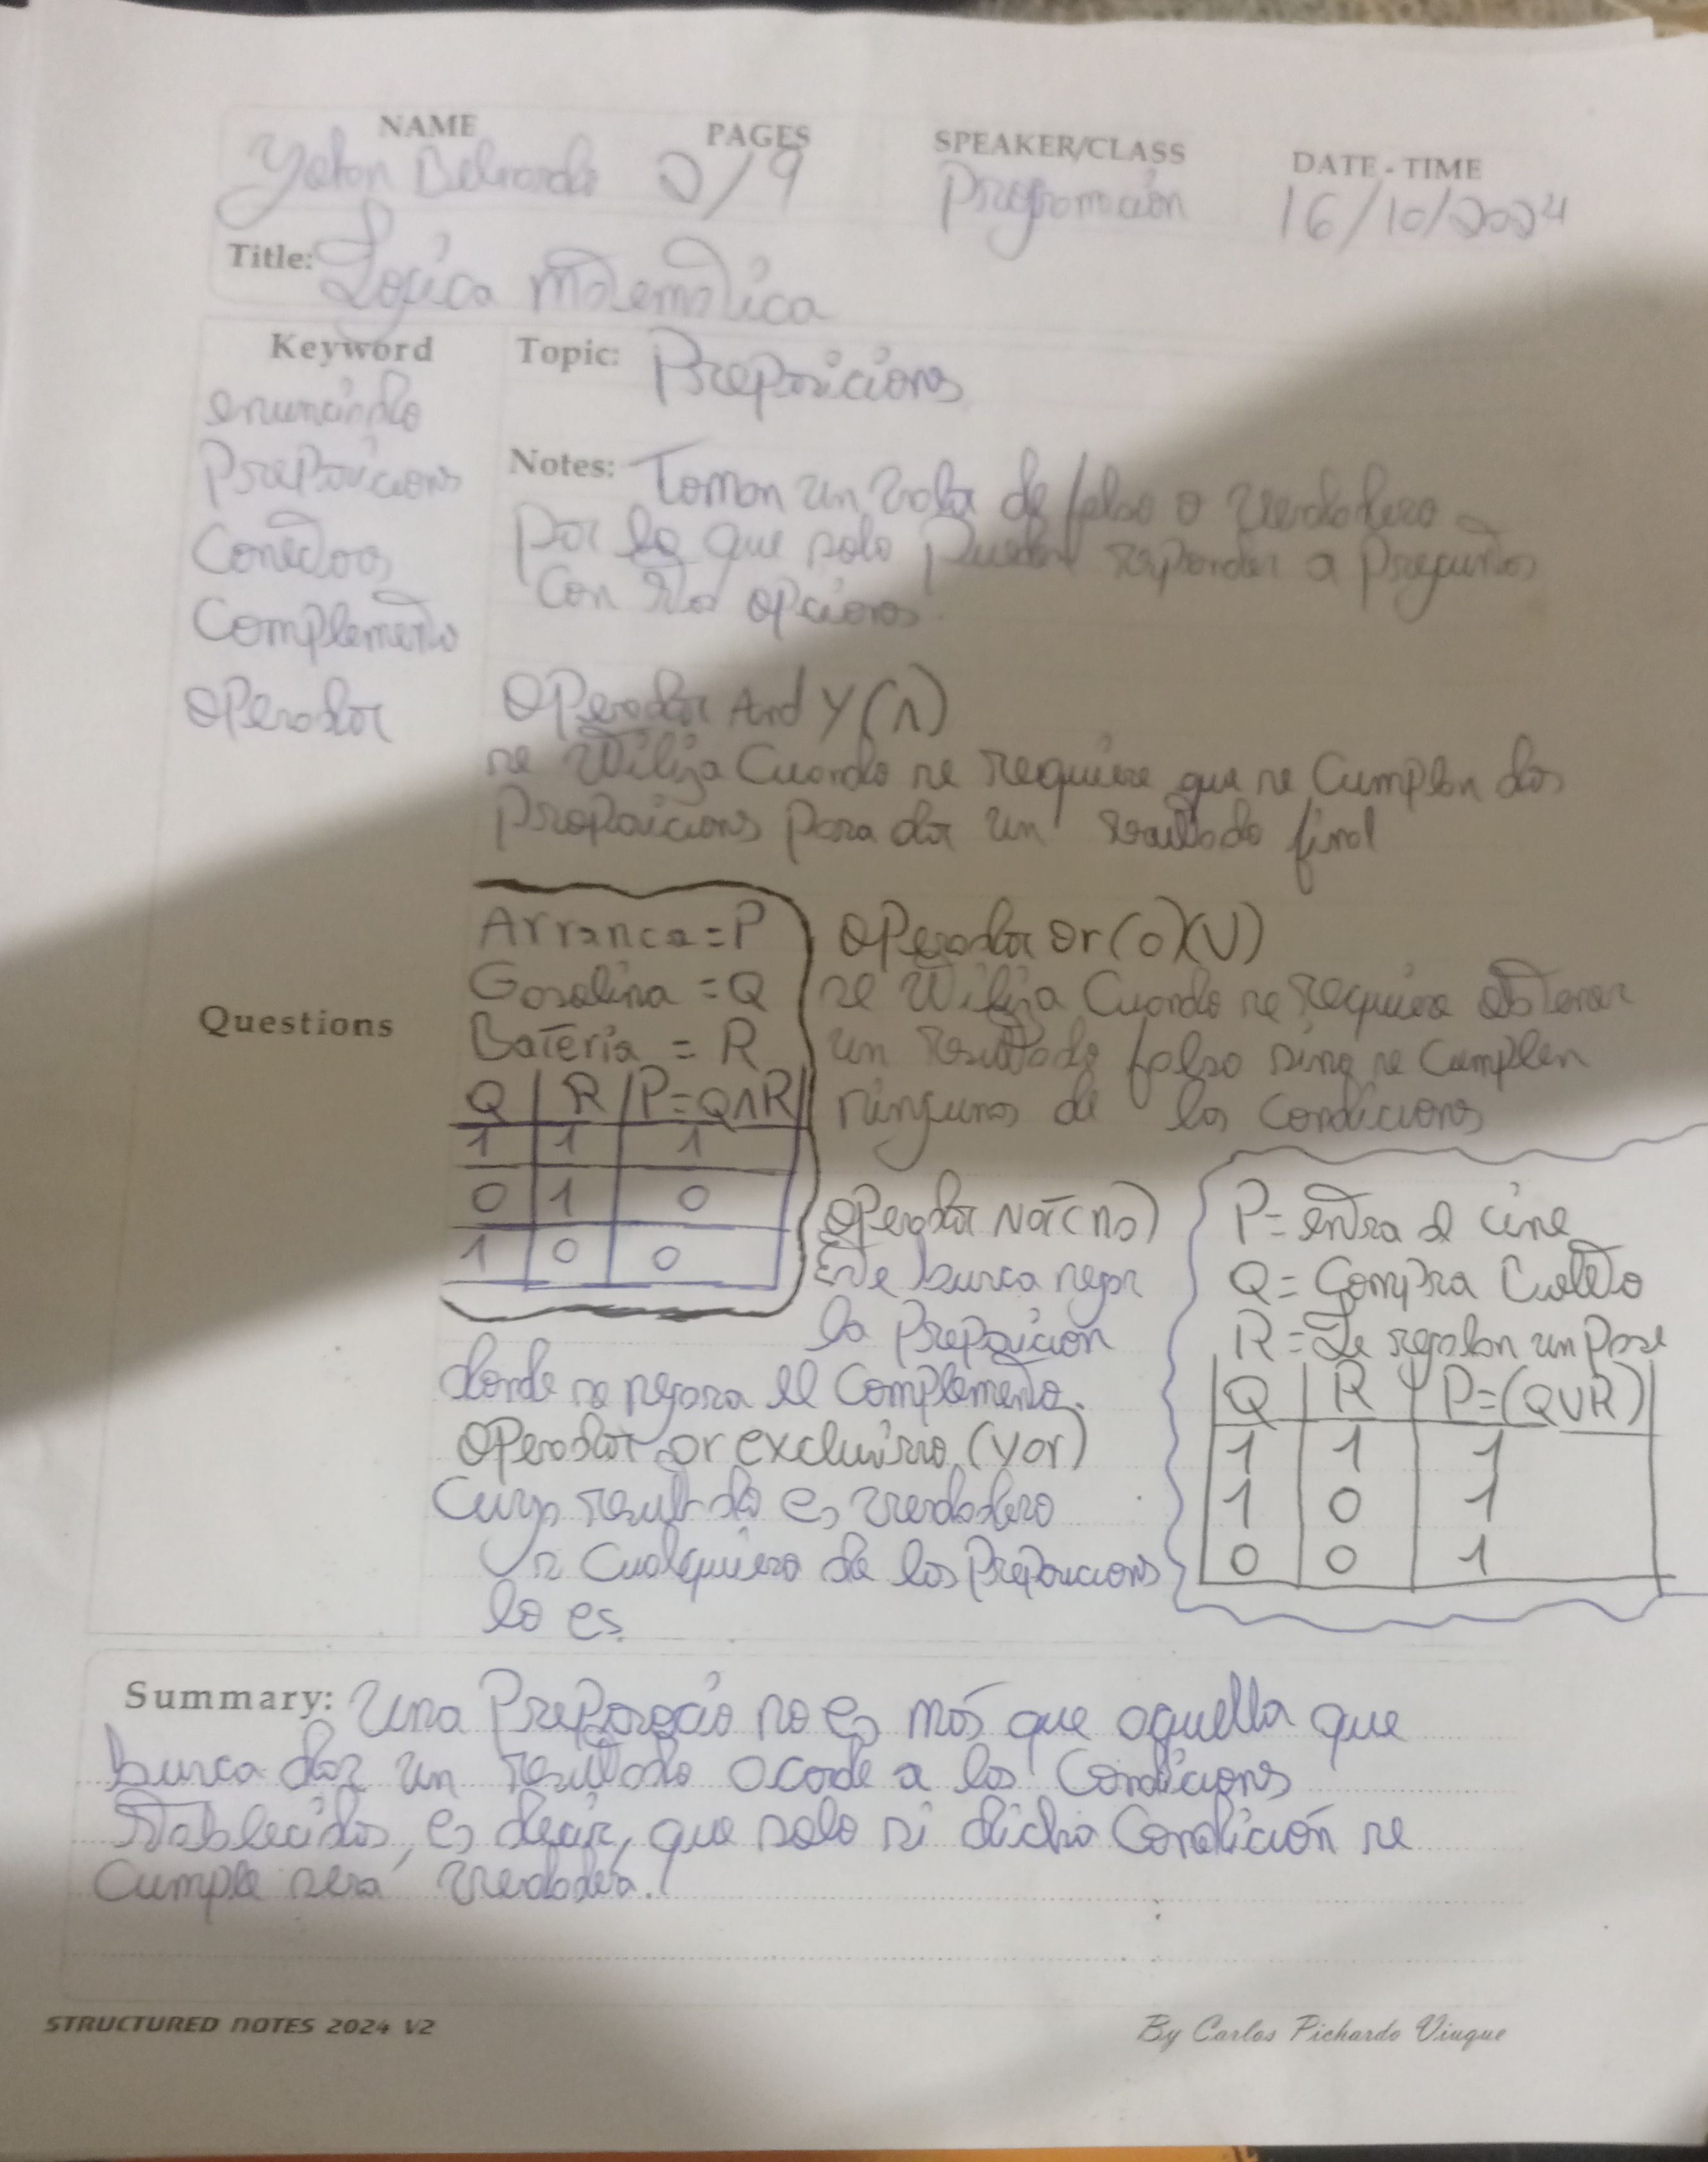 NAME PAGES SPEAKER/CLASS DATE - TIME
0/9 Programación 16/10/2024
Title: Logica matematica
Keyword
enunciado
Preposicions
Conectos
Complemento
Operador
Topic: Preposicions
Notes: Toman un valor de falso o verdadero
por lo que solo pueden responder a preguntas
con estas opcions.
Operador And Y (∧)
se utiliza cuando se requiere que se cumplan dos
proposicions para dar un resultado final
Arranca = P
Gasolina = Q
Bateria = R
Q R P=Q∧R
1 1 1
0 1 0
1 0 0
Operador or (o) (V)
se utiliza cuando se requiere obtener
un resultado falso sino se cumplen
ningunas de las condicions
Questions
Operador Not (no)
Este busca negar
la preposicion
donde se negara el complemento.
Operador or exclusivo (yor)
cuyo resultado es verdadero
si cualquiera de las preposicions
lo es.
P= entra al cine
Q= Compra boleto
R= Le regalan un pase
Q R P=(QVR)
1 1 1
1 0 1
0 0 1
Summary: Una no es más que aquella que
busca dar un resultado acorde a las condicions
establecidas, es decir, que solo si dicha condición se
cumple será verdadera.
STRUCTURED NOTES 2024 V2
By Carlos Pichardo Viuque